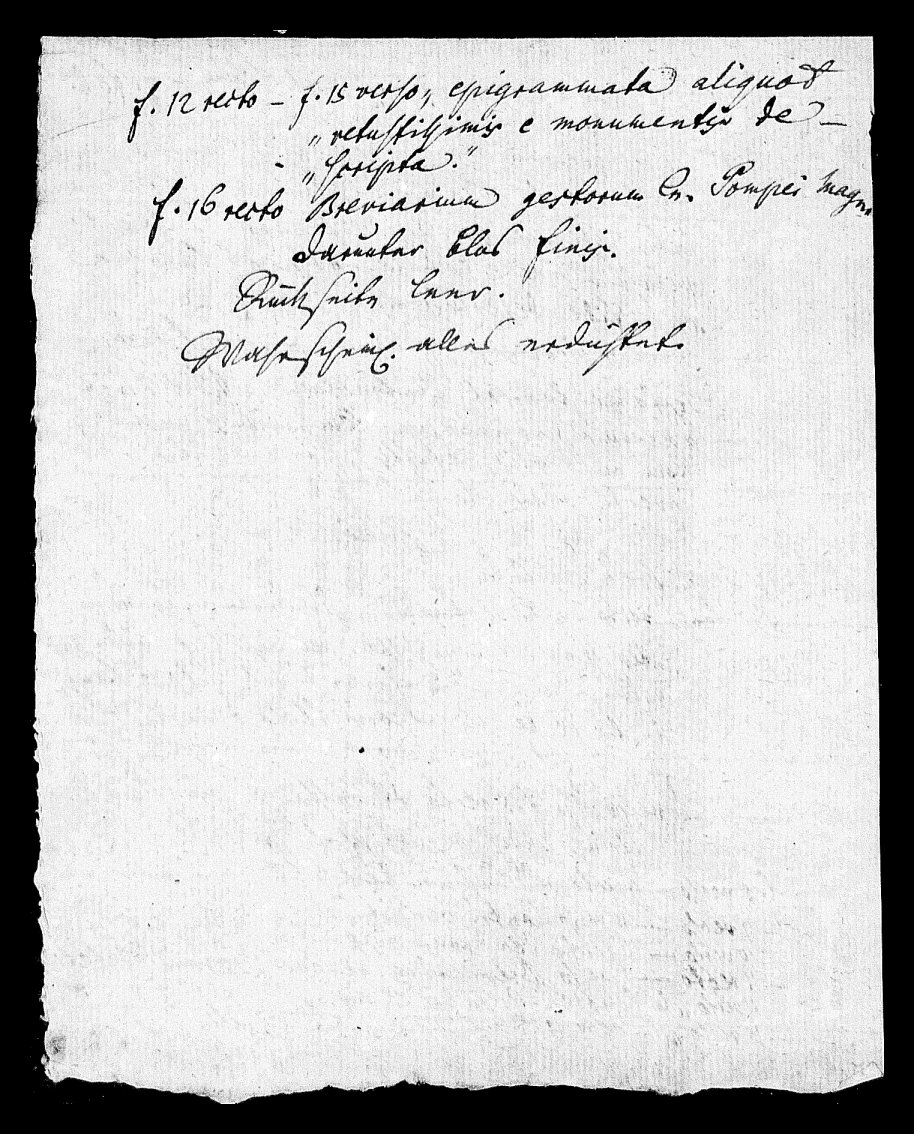 f. 12 recto – f. 15 verso „ epigrammata aliquod
„ vetustissimis e monumentis de –
„ scripta."
f. 16 recto Breviarium gestorum Cn. Pompei Magn.
darunter blos finis.
Rückseite leer.
Wahrscheinl. alles erdichtet.